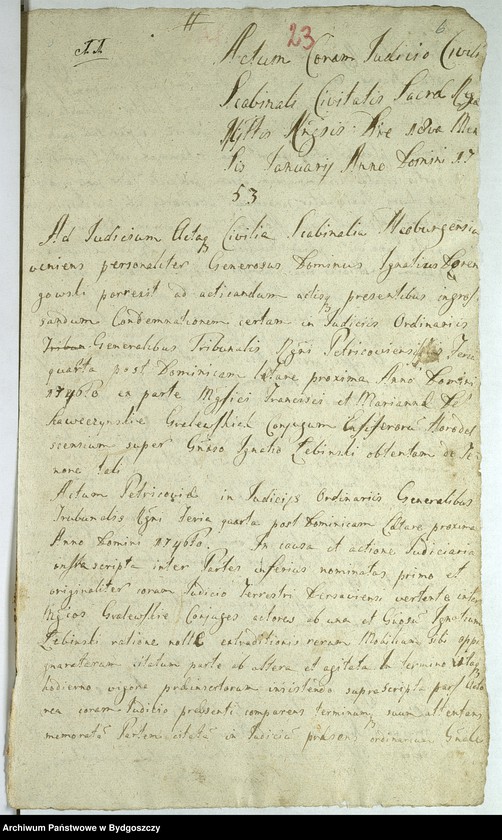 23
6
Actum Coram Iudicio Civili
Scabinali Civitatis Sacrae
Die 18va Men
sis Ianuarij Anno Domini 17
53
Ad Iudicium Actaq Civilia Scabinalia
veniens personaliter Generosus Dominus Ignatius
gowski porrexit ad acticandum actisq presentibus ingros
sandum Condemnationem certam in Iudiciis Ordinariis
Generalibus Tribunalis Rgni Petricoviensis Feria
quarta post Dominicam Laetare proxima Anno Domini
1746to ex parte Mgficor Francisci et Mariannae de
Conjugum Horodel
szensium super Gnoso Ignatio Łebinski obtentam de Te-
nore tali
Actum Petricoviae in Iudicijs Ordinariis Generalibus
Trubunalis Rgni Feria quarta post Dominicam Laetare proxima
Anno Domini 1746to. In causa et actione Iudiciaria
infra scripta inter Partes inferius nominatas primo et
originaliter coram Iudicio Terrestri vertente inter
Conjuges actores ab una et Gnosu Ignatium
Łebinski ratione extraditionis rerum Mobilium sibi oppi
gnoratarum citatum parte ab altera et agitata in termino itaq
hodierno vigore praeinsertorum insistendo suprascripta pars Acto
rea coram Iudicio praesenti comparens terminumq suum attentans
memoratā Partem citatā in Iudiciū praesens
Archiwum Państwowe w Bydgoszczy